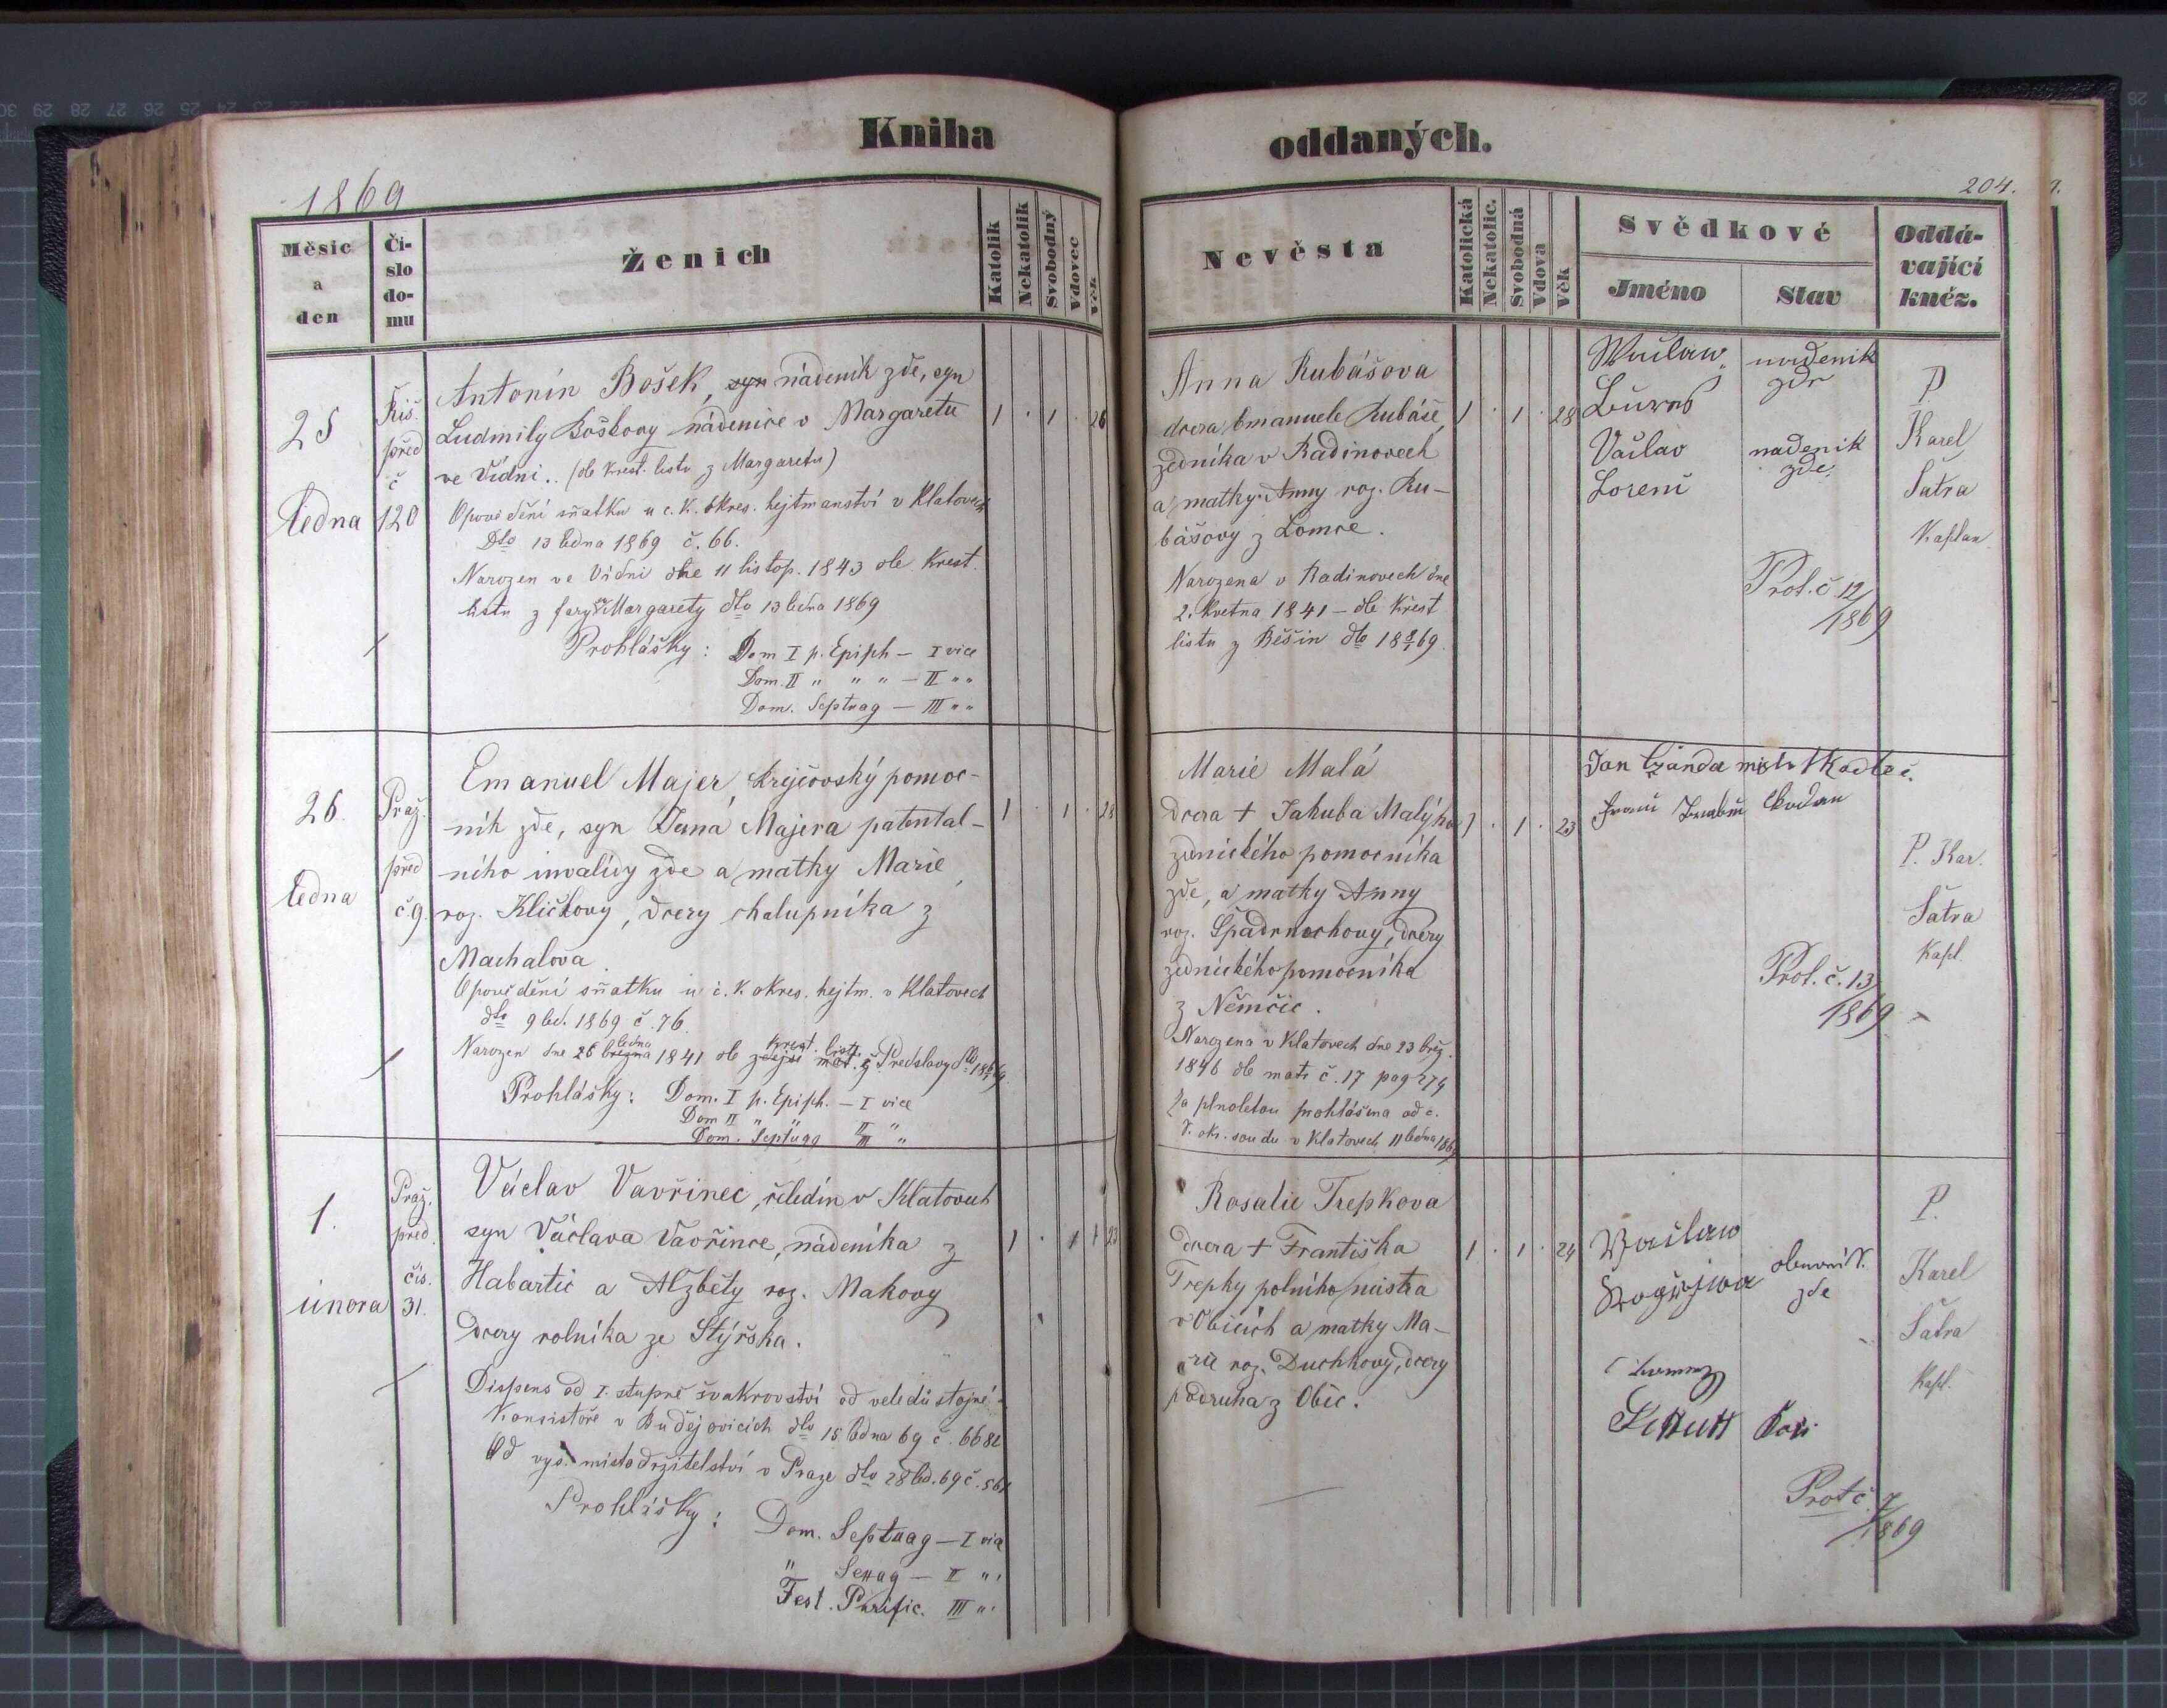 Kniha
oddaných.
1869
204.
Měsíc
a
den
Čí-
slo
do-
mu
Ženich
Katolík
Nekatolík
Svobodný
Vdovec
Věk
Nevěsta
Katolická
Nekatolic.
Svobodná
Vdova
Věk
Svědkové
Jméno
Stav
Oddá-
vající
kněz.
25
ledna
Říš.
před
č
120
Antonín Bošek, syn nádeník zde, syn
Ludmily Boškovy nádenice v Margaretu
ve Vídni.. (dle křest. listu z Margaretu)
Opovědění sňatku u c. k. okres. hejtmanství v Klatovech
dto 13 ledna 1869 č. 66.
Narozen ve Vídni dne 11 listop. 1843 dle křest.
listu z fary Margarety dto 13 ledna 1869
Prohlášky: Dom I p. Epiph — I vice
Dom. II " " " — II " "
Dom. Septuag — III " "
1 . 1 . 26
Anna Rubášova
dcera Emanuele Rubáše,
zedníka v Radinovech
a matky Anny roz. Ru-
bášovy z Lomce.
Narozena v Radinovech dne
2. května 1841 — dle křest
listu z Běšin dto
1 . 1 . 28
nadenik
zde
Václav
nadenik
zde
P
Karel
Šatra
Kaplan.
Prot. č. 12/
1869
26.
ledna
Praž.
před
č 9.
Emanuel Majer, krejčovský pomoc-
ník zde, syn Jana Majera patental-
ního invalidy zde a matky Marie,
roz. Kličkovy, dcery chalupníka z
Machalova.
Opovědění sňatku u c. k. okres. hejtm. v Klatovech
dto 9 led. 1869 č. 76.
ledna křest. listu
Narozen dne 26 března 1841 dle zdejší mat. z Předslavy
Prohlášky: Dom. I p. Epiph. — I vice
Dom II " " II "
Dom. Septuag III "
1 . 1 . 28
Marie Malá
dcera + Jakuba Malýho
zednického pomocníka
zde, a matky Anny
roz. Špadrnochovy, dcery
zednického pomocníka
z Němčic.
Narozena v Klatovech dne 23 břez.
1846 dle mat. č. 17 pag 279
Za plnoletou prohlášena od c.
k. okr. soudu v Klatovech 11 ledna 1869
1 . 1 . 23
Jan
P. Kar.
Šatra
Kapl.
Prot. č. 13/
1869
1.
února
Praž.
před.
čís.
31.
Václav Vavřinec, čeledín v Klatovech
syn Václava Vavřince, nádeníka z
Habartic a Alžběty roz. Makovy
dcery rolníka ze Stýřska.
Dispens od I. stupně švakrovství od veledůstojné
Konsistoře v Budějovicích dto 15 ledna 69 č.
Od vys. místodržitelství v Praze dto 28 led. 69 č.
Prohlášky: Dom. Septuag — I vice
" Sexag — II " "
Fest. Purific. III " "
1 . 1 23
Rosalie Trepkova
dcera + Františka
Trepky polního mistra
v Obicích a matky Ma-
rie roz. Duchkovy, dcery
podruha z Obic.
1 . 1 . 24
Waclaw
zde
P.
Karel
Šatra
Kapl.
Prot č. 7/
1869